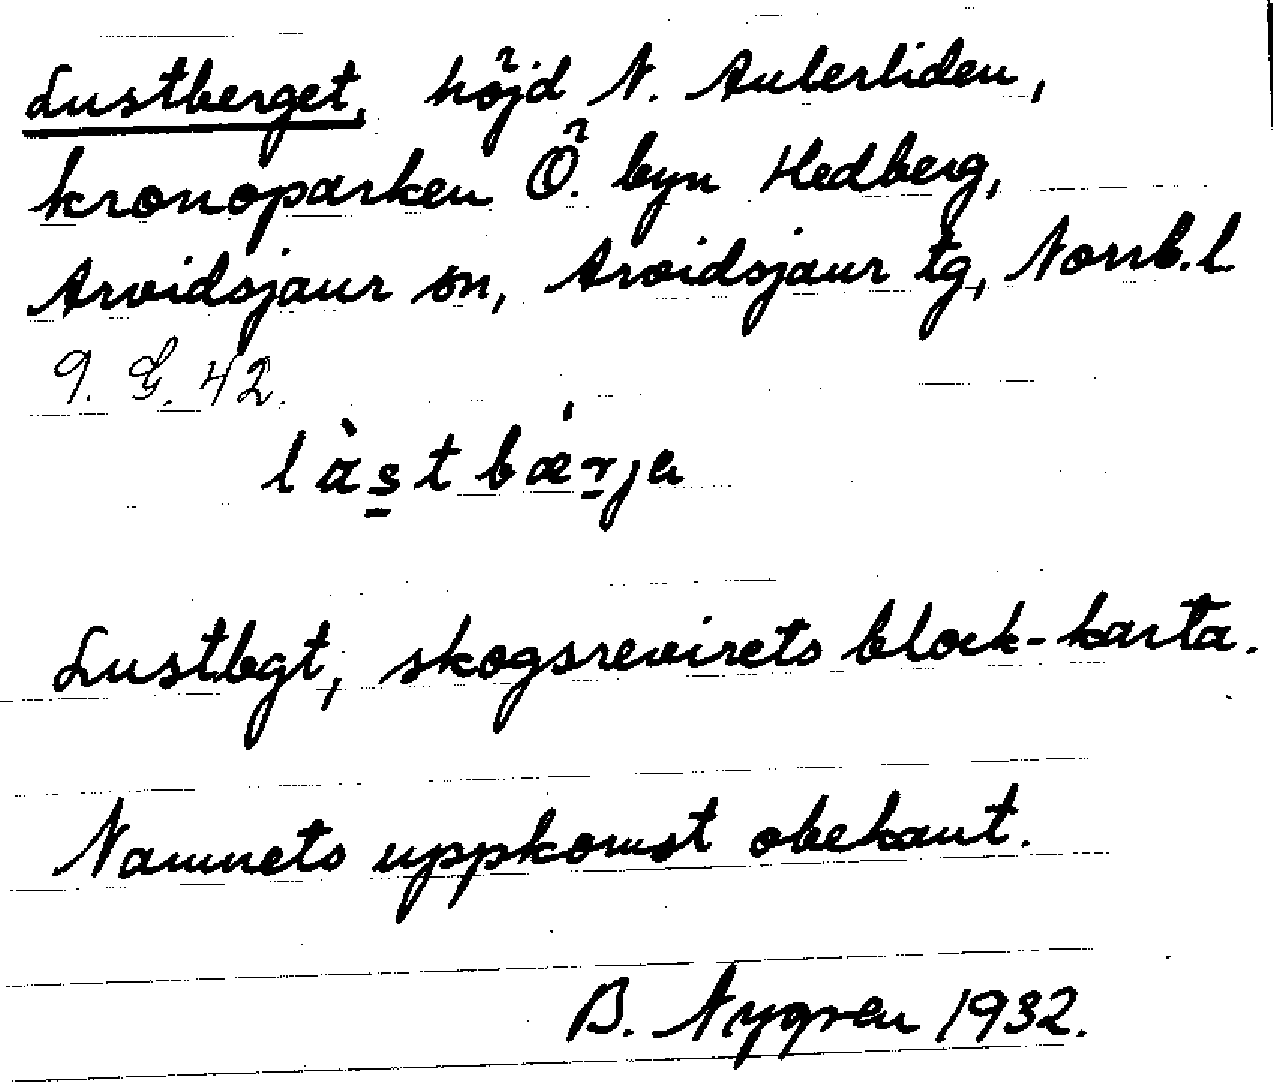 Lustberget, höjd N. Auberliden,
kronoparken Ö. byn Hedberg,
Arvidsjaur sn, Arvidsjaur tg, Norrb.l.
9. G. 42.
làstbǽrja
Lustbgt, skogsrevirets block-karta.
Namnets uppkomst obekant.
B. Nygren 1932.